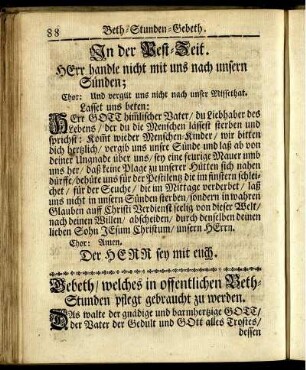 88 Beth-Stunden-Gebeth.
In der Pest-Zeit.
HErr handle nicht mit uns nach unsern
Sünden;
Chor: Und vergilt uns nicht nach unser Missethat.
Lasset uns beten:
HErr GOTT him̃lischer Vater/ du Liebhaber des
Lebens/ der du die Menschen lässest sterben und
sprichst: Kom̃t wieder Menschen-Kinder/ wir bitten
dich hertzlich/ vergib uns unser Sünde und laß ab von
deiner Ungnade über uns/ sey eine feurige Mauer umb
uns her/ daß keine Plage zu unserer Hütten sich nahen
dürffe/ behüte uns für der Pestilentz die im finstern schlei-
chet/ für der Seuche/ die im Mittage verderbet/ laß
uns nicht in unsern Sünden sterben/ sondern in wahren
Glauben auff Christi Verdienst seelig von dieser Welt/
nach deinen Willen/ abscheiden/ durch denselben deinen
lieben Sohn JEsum Christum/ unsern HErrn.
Chor: Amen.
Der HERR sey mit euch.
Gebeth/ welches in offentlichen Beth-
Stunden pflegt gebraucht zu werden.
DAs walte der gnädige und barmhertzige GOTT/
der Vater der Gedult und GOtt alles Trostes/
dessen